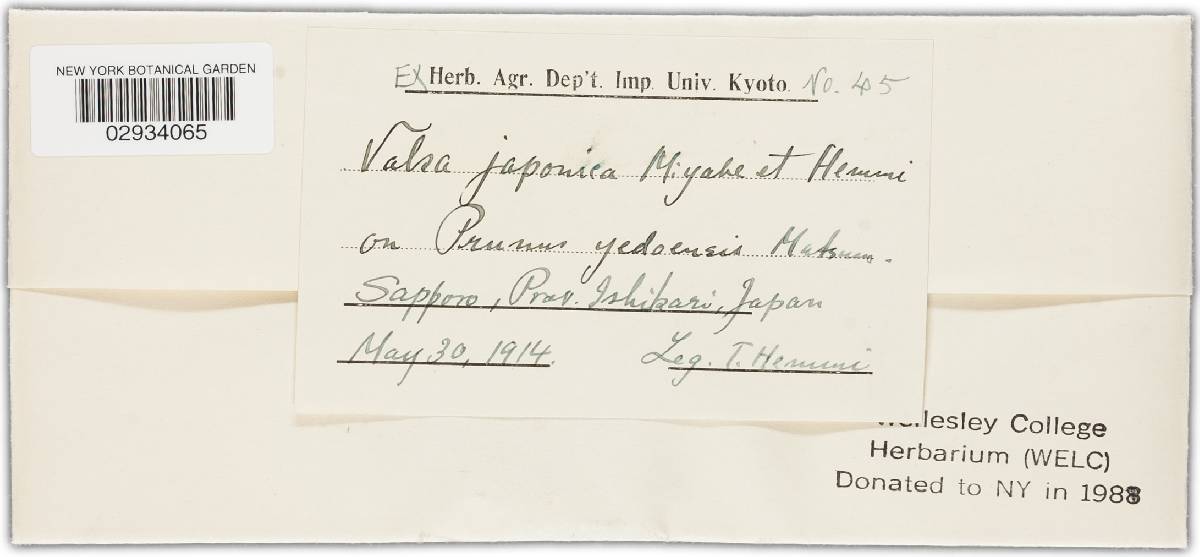 NEW YORK BOTANICAL GARDEN
02934065
Ex Herb. Agr. Dep't. Imp. Univ. Kyoto. No. 45
Valsa japonica Miyabe et Hemmi
on Prunus yedoensis Matsum.
Sapporo, Prov. Ishikari, Japan
May 30, 1914. Leg. T. Hemmi
Wellesley College
Herbarium (WELC)
Donated to NY in 1988